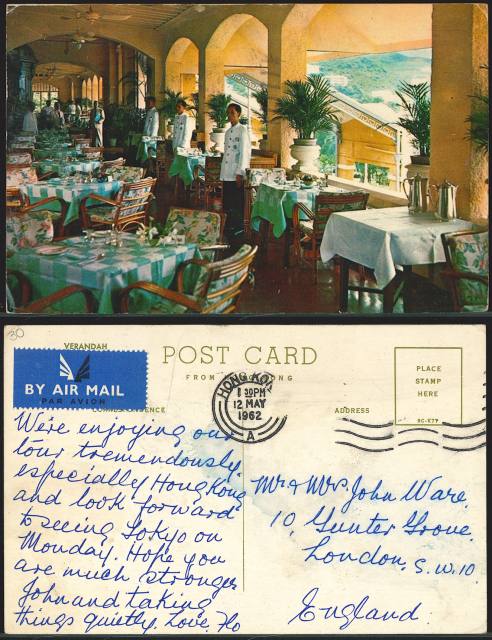 30
VERANDAH
POST CARD
FROM HONG KONG
BY AIR MAIL
PAR AVION
CORRESPONDENCE
ADDRESS
PLACE
STAMP
HERE
HONG KONG
30PM
12 MAY
1962
A
We're enjoying our
tour tremendously,
especially Hong Kong
and look forward
to seeing Tokyo on
Monday. Hope you
are much stronger
John and taking
things quietly. Love. Flo
Mr & Mrs. John Ware.
10, Gunter Grove.
London. S.W.10.
England.